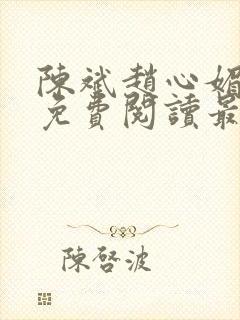 陳斌趙心媚
免費閱讀最
陳啓波